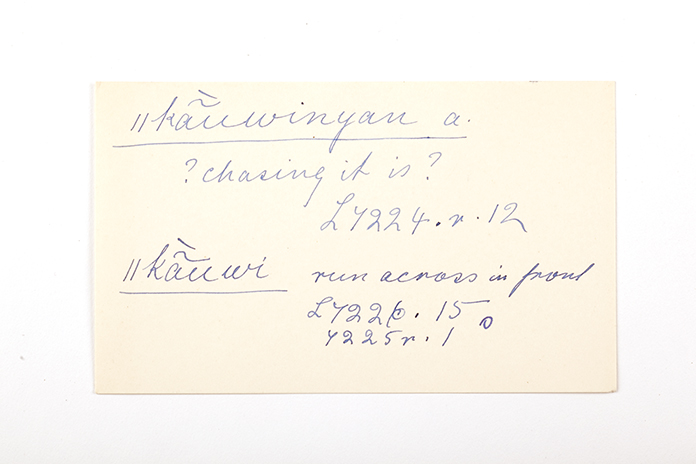 ǁkã̀uwinyan a.
? chasing it is ?
L7224. r. 12
ǁkã̀uwi run across in front
L7226. 15
7225 r. 1